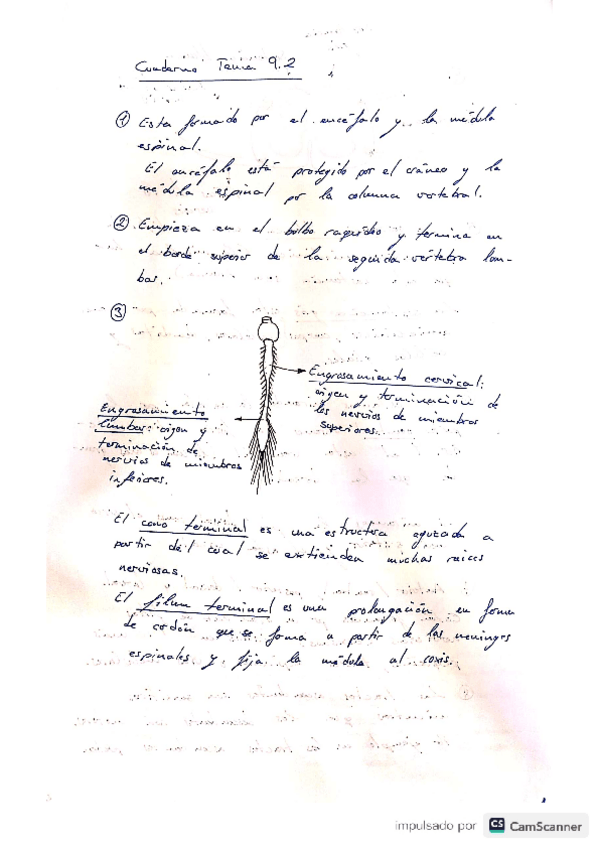 Cuaderno Tema 9.2
① Esta formado por el encéfalo y la médula
espinal.
El encéfalo está protegido por el cráneo y la
médula espinal por la columna vertebral.
② Empieza en el bulbo raquídeo y termina en
el borde superior de la segunda vértebra lum-
bar.
③
Engrosamiento cervical:
origen y terminación de
los nervios de miembros
superiores.
Engrosamiento
lumbar: origen y
terminación de
nervios de miembros
inferiores.
El cono terminal es una estructura aguzada a
partir del cual se extienden muchas raices
nerviosas.
El filum terminal es una prolongación en forma
de cordón que se forma a partir de las meninges
espinales y fija la médula al coxis.
impulsado por CS CamScanner